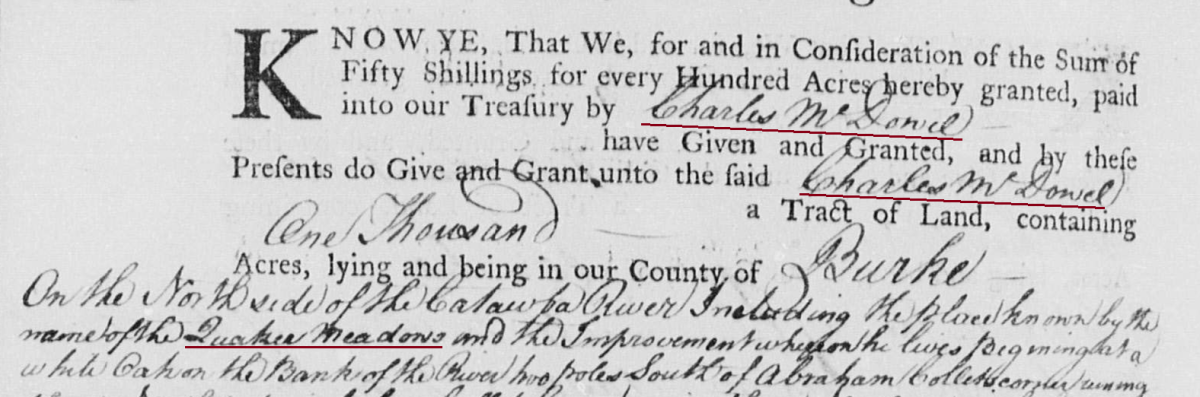 KNOW YE, That We, for and in Conſideration of the Sum of
Fifty Shillings for every Hundred Acres hereby granted, paid
into our Treaſury by Charles McDowel
have Given and Granted, and by theſe
Preſents do Give and Grant unto the ſaid Charles McDowel
a Tract of Land, containing
One Thousand
Acres, lying and being in our County of Burke
On the North side of the Catawba River Including the place known by the
name of the Quaker Meadows and the Improvement whereon he lives Begining at a
white Oak on the Bank of the River two poles South of Abraham Collets corner runing